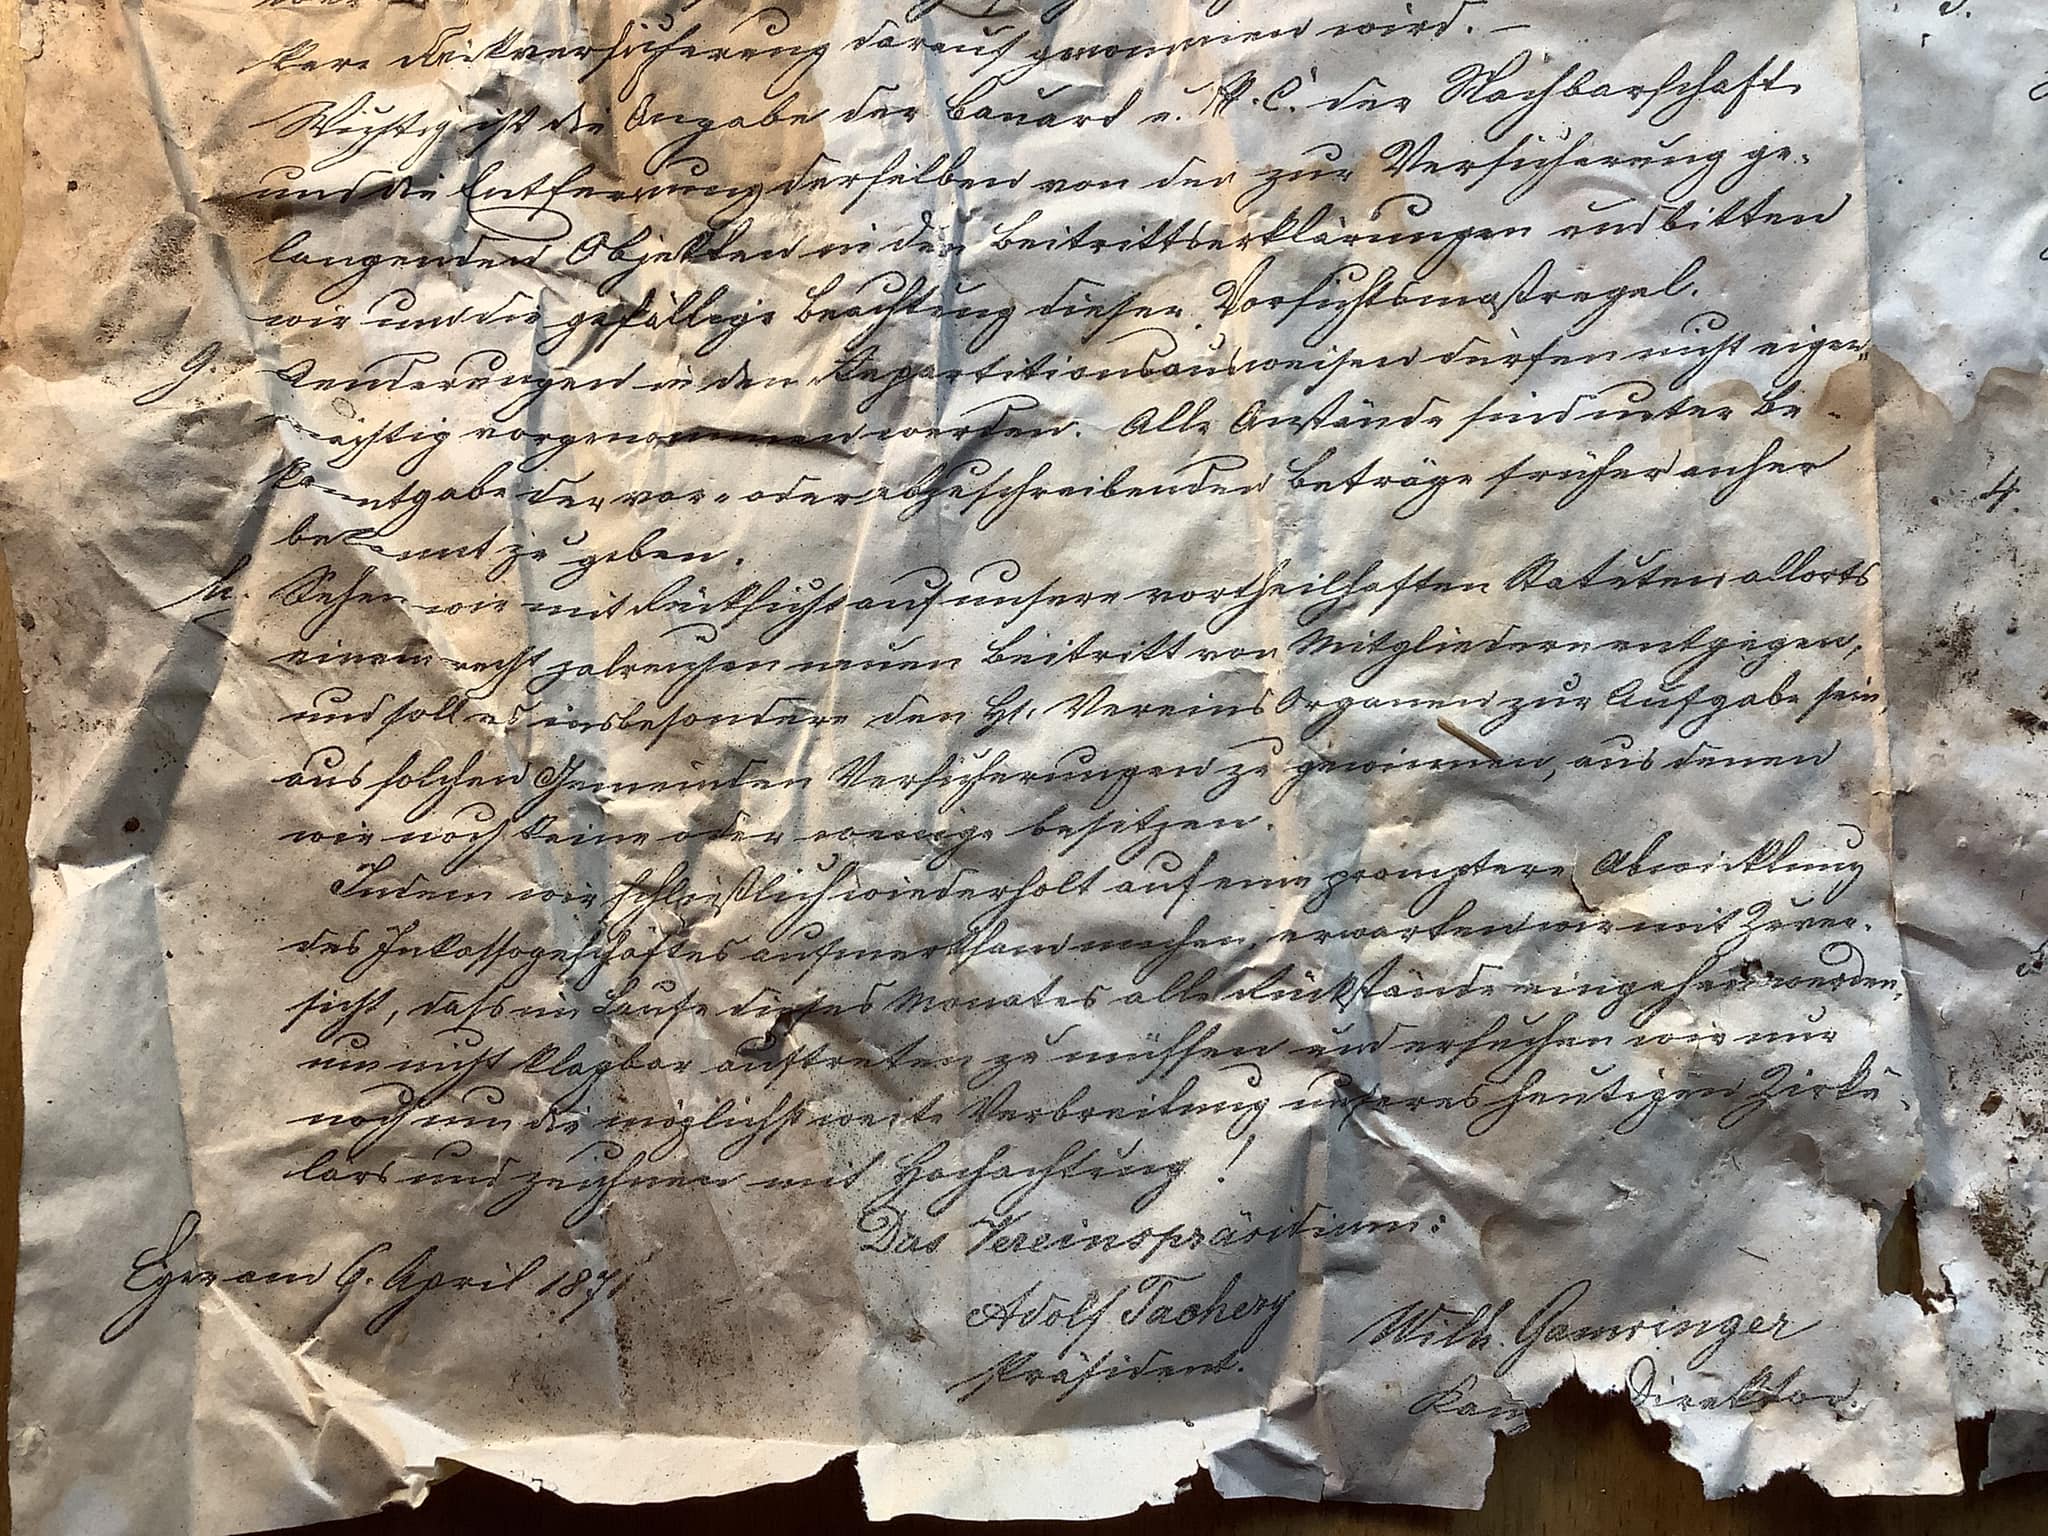 Rückversicherung darauf genommen wird. –
Wichtig ist die Angabe der Bauart u. der Nachbarschaft
und die Entfernung derselben von den zur Versicherung ge-
langenden Objekten in den Beitrittserklärungen und bitten
wir um die gefällige Beachtung dieser Vorsichtsmaßregel.
g. Aenderungen in den Repartitionsausweisen dürfen nicht eigen-
mächtig vorgenommen werden. Alle Anstände sind unter Be-
kanntgabe der vor- oder abzuschreibenden Beträge früher anher
bekannt zu geben.
h. Sehen wir mit Rücksicht auf unsere vortheilhaften Statuten allorts
einem recht zalreichen neuen Beitritt von Mitgliedern entgegen,
und soll es insbesondere den Vereins Organen zur Aufgabe sein,
aus solchen Gemeinden Versicherungen zu gewinnen, aus denen
wir noch keine oder wenige besitzen.
Indem wir schließlich wiederholt auf eine promptere Abwicklung
des Inkassogeschäftes aufmerksam machen, erwarten wir mit Zuver-
sicht, dass im Laufe dieses Monates alle Rückstände werden,
um nicht klagbar auftreten zu müssen und ersuchen wir nur
noch um die möglichst weite Verbreitung unseres heutigen Zirku-
lars und zeichnen mit Hochachtung!
Das Vereinspräsidium:
Eger am 6. April 1871
Adolf Tachezy
Wilh. Gamringer
Präsident.
Direktor.
4.